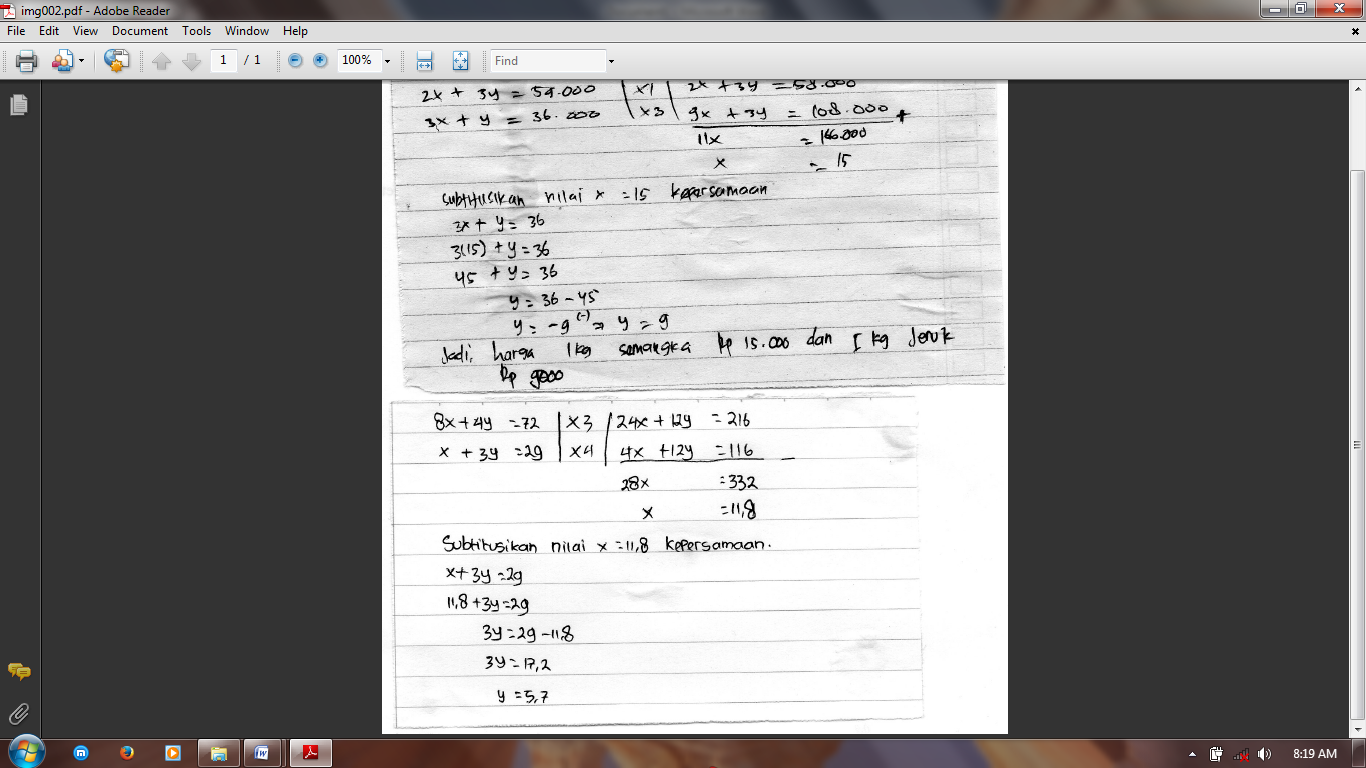 img002.pdf - Adobe Reader
File Edit View Document Tools Window Help
1 / 1 100% Find
2x + 3y = 59.000 | x1 | 2x + 3y = 58.000
3x + y = 36.000 | x3 | 9x + 3y = 108.000 +
11x = 166.000
x = 15
Subtitusikan nilai x = 15 kepersamaan
3x + y = 36
3(15) + y = 36
45 + y = 36
y = 36 - 45
y = -9 (-) => y = 9
Jadi, harga 1 kg semangka Rp 15.000 dan 1 kg Jeruk
Rp 9000
8x + 4y = 72 | x3 | 24x + 12y = 216
x + 3y = 29 | x4 | 4x + 12y = 116 -
28x = 332
x = 11,8
Subtitusikan nilai x = 11,8 kepersamaan.
x + 3y = 29
11,8 + 3y = 29
3y = 29 - 11,8
3y = 17,2
y = 5,7
8:19 AM